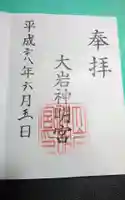 奉拝
大岩神明宮
平成二八年六月五日